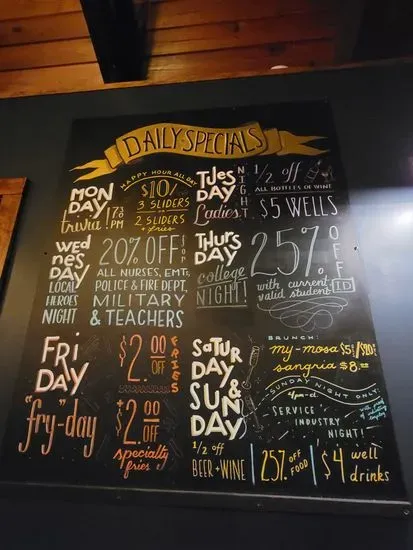 DAILY SPECIALS
MON
DAY
trivia!
HAPPY HOUR ALL DAY
$10/
3 SLIDERS
OR
2 SLIDERS
+ fries
TUES
DAY
Ladies
NIGHT
1/2 off
ALL BOTTLES OF WINE
$5 WELLS
Wed
nes
DAY
LOCAL
HEROES
NIGHT
20% OFF
ALL NURSES, EMT,
POLICE & FIRE DEPT,
MILITARY
& TEACHERS
THURS
DAY
college
NIGHT!
25% OFF
with current
valid student ID
FRI
DAY
"fry"-day
$2.00
OFF
FRIES
$2.00
OFF
specialty
fries
SATUR
DAY &
SUN
DAY
BRUNCH:
my-mosa $5
sangria $8.00
SUNDAY NIGHT ONLY:
4pm-cl
SERVICE
INDUSTRY
NIGHT!
1/2 off
BEER + WINE
25% OFF
FOOD
$4 well
drinks